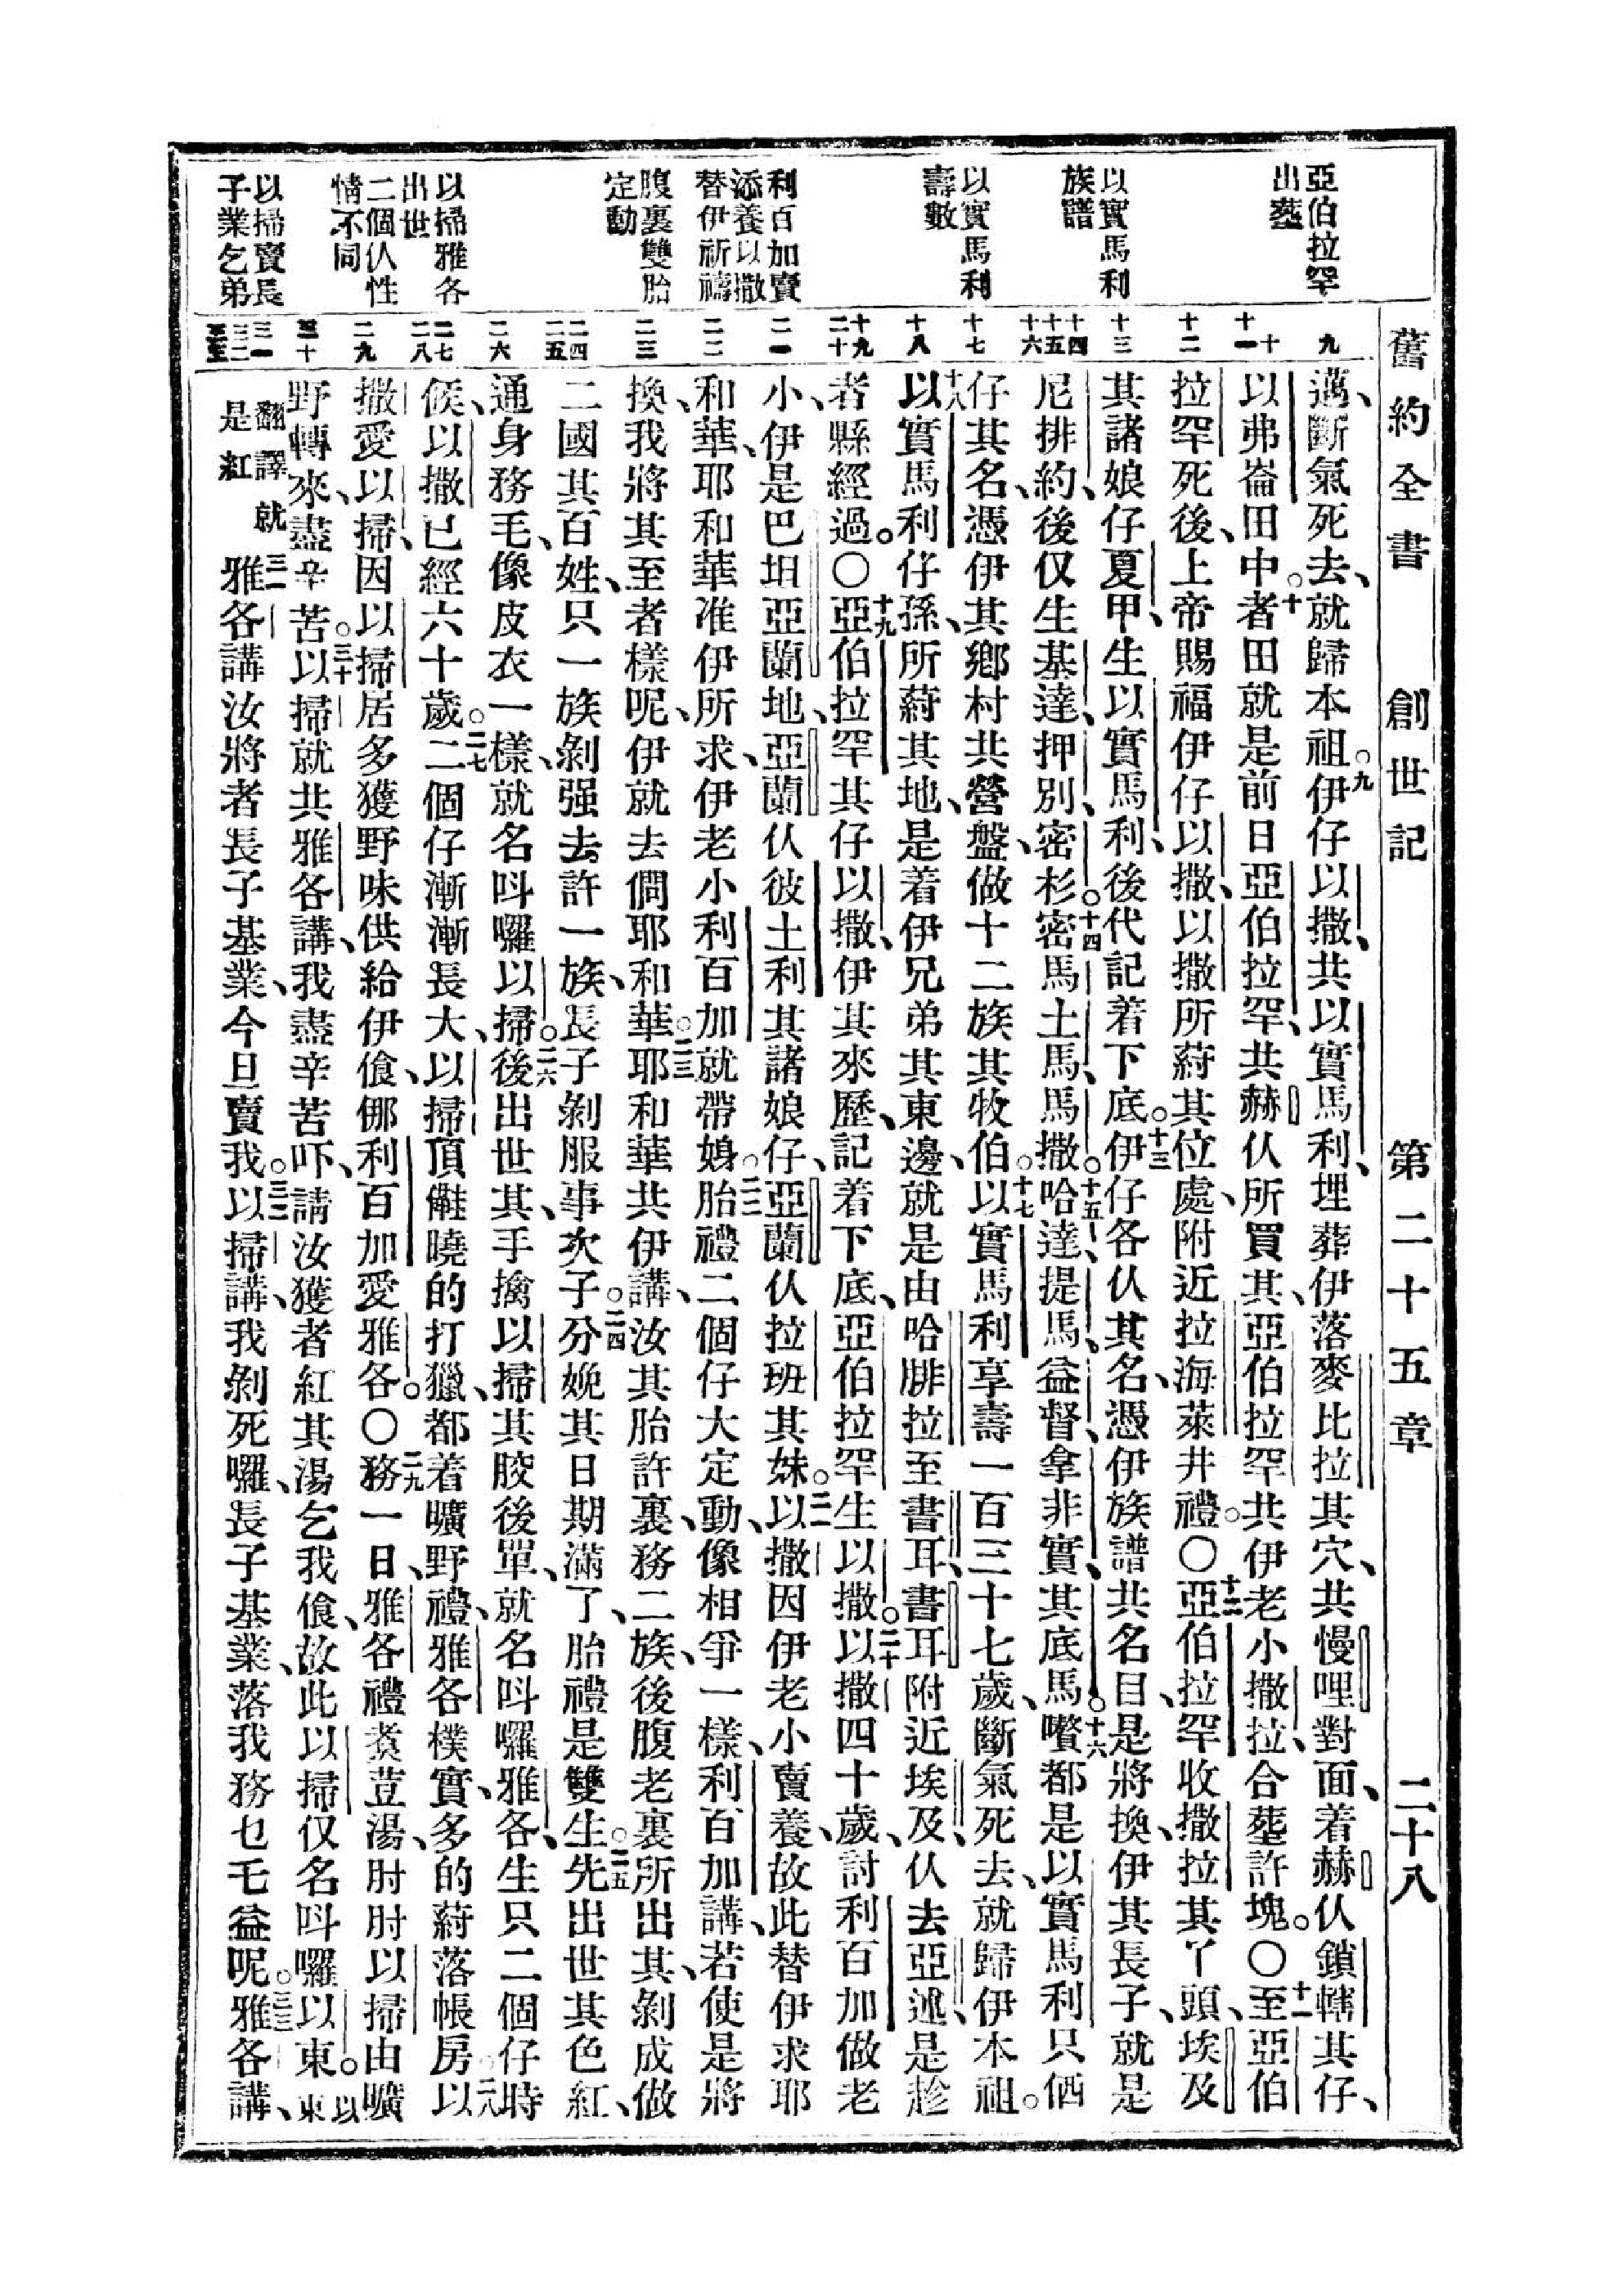 舊約全書　創世記　第二十五章　二十八
亞伯拉罕
出葬
以實馬利
族譜
以實馬利
壽數
利百加賣
添養以撒
替伊祈禱
腹裏雙胎
定動
以掃雅各
出世
二個仈性
情不同
以掃賣長
子業乞弟
九
十
十一
十二
十三
十四
十五
十六
十七
十八
十九
二十
二一
二二
二三
二四
二五
二六
二七
二八
二九
三十
三一
三二
邁、斷氣死去、就歸本祖。九伊仔以撒、共以實馬利、埋葬伊落麥比拉其穴、共慢哩對面、着赫仈鎖轄其仔、
以弗崙田中。十者田就是前日亞伯拉罕、共赫仈所買其、亞伯拉罕共伊老小撒拉、合塟許塊。〇十一至亞伯
拉罕死後、上帝賜福伊仔以撒、以撒所蒔其位處、附近拉海萊井禮。〇十二亞伯拉罕收撒拉其丫頭、埃及
其諸娘仔夏甲、生以實馬利、後代記着下底。十三伊仔各仈其名、憑伊族譜共名目、是將換、伊其長子、就是
尼排約、後仅生基達、押別、密杉。十四密馬土馬、馬撒。十五哈達、提馬、益督、拿非實、其底馬。十六嚽都是以實馬利只価
仔其名、憑伊其鄉村共營盤、做十二族其牧伯。十七以實馬利享壽一百三十七歲、斷氣死去、就歸伊本祖。
十八以實馬利仔孫、所蒔其地、是着伊兄弟其東邊、就是由哈腓拉至書耳、書耳附近埃及、仈去亞述、是趁
者縣經過。〇十九亞伯拉罕其仔以撒、伊其來歷、記着下底、亞伯拉罕生以撒。二十以撒四十歲、討利百加做老
小、伊是巴坦亞蘭地、亞蘭仈彼土利其諸娘仔、亞蘭仈拉班其妹。二一以撒因伊老小賣養、故此替伊求耶
和華、耶和華准伊所求、伊老小利百加就帶娠。二二胎禮二個仔大定動、像相爭一樣、利百加講、若使是將
換、我將其至者樣呢、伊就去問耶和華。二三耶和華共伊講、汝其胎許裏、務二族、後腹老裏所出其、剝成做
二國其百姓、只一族、剝强去許一族、長子剝服事次子。二四分娩其日期滿了、胎禮是雙生。二五先出世其色紅、
通身務毛、像皮衣一樣、就名呌囉以掃。二六後出世其、手擒以掃其骹後單、就名呌囉雅各、生只二個仔時
候、以撒已經六十歲。二七二個仔漸漸長大、以掃頂㒕曉的打獵、都着曠野禮、雅各樸實、多的蒔落帳房。二八以
撒愛以掃、因以掃居多獲野味供給伊飡、倻利百加愛雅各。〇二九務一日、雅各禮煑荳湯、肘肘以掃由曠
野轉來、盡辛苦。三十以掃就共雅各講、我盡辛苦吓、請汝獲者紅其湯乞我飡、故此以掃仅名呌囉以東。以東
翻譯就
是紅
三一雅各講汝將者長子基業、今旦賣我。三二以掃講、我剝死囉、長子基業、落我務乜乇益呢。三三雅各講、